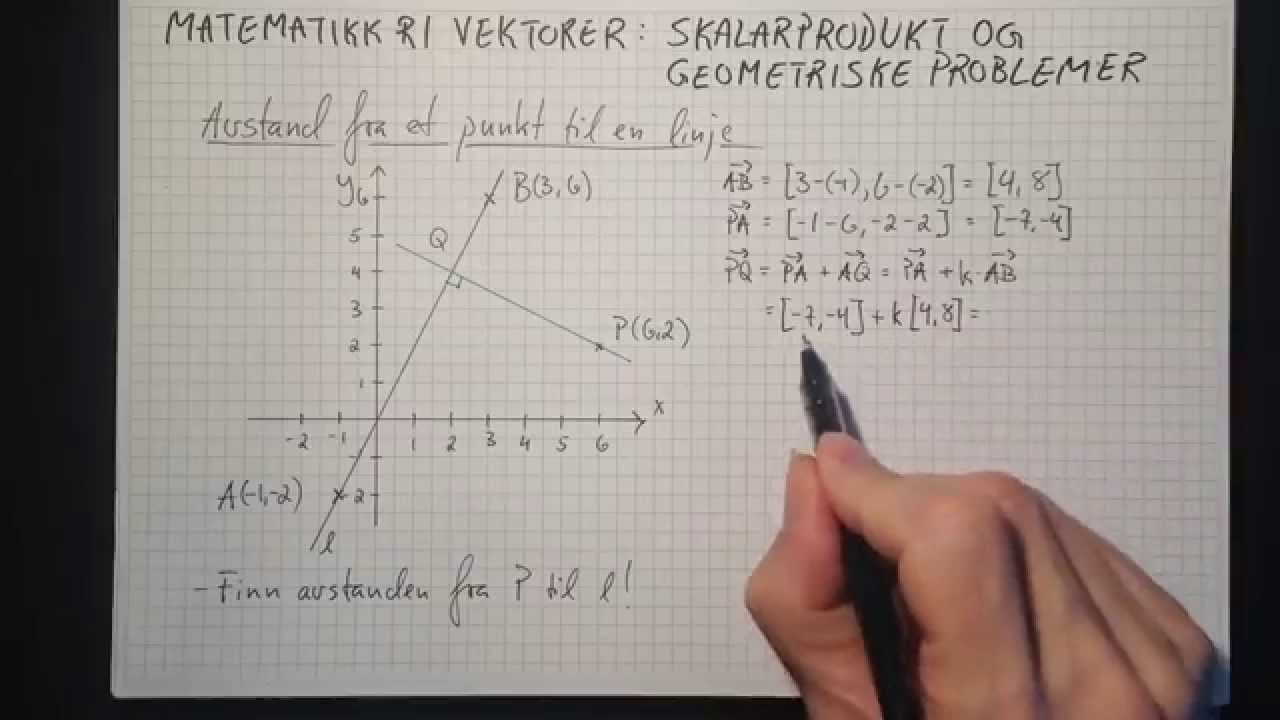 MATEMATIKK R1 VEKTORER: SKALARPRODUKT OG
GEOMETRISKE PROBLEMER
Avstand fra et punkt til en linje
y
6
5
4
3
2
1
-2 -1 1 2 3 4 5 6
x
-2
B(3,6)
Q
P(6,2)
A(-1,-2)
l
- Finn avstanden fra P til l!
→AB = [3-(-1), 6-(-2)] = [4, 8]
→PA = [-1-6, -2-2] = [-7, -4]
→PQ = →PA + →AQ = →PA + k·→AB
= [-7, -4] + k[4, 8] =